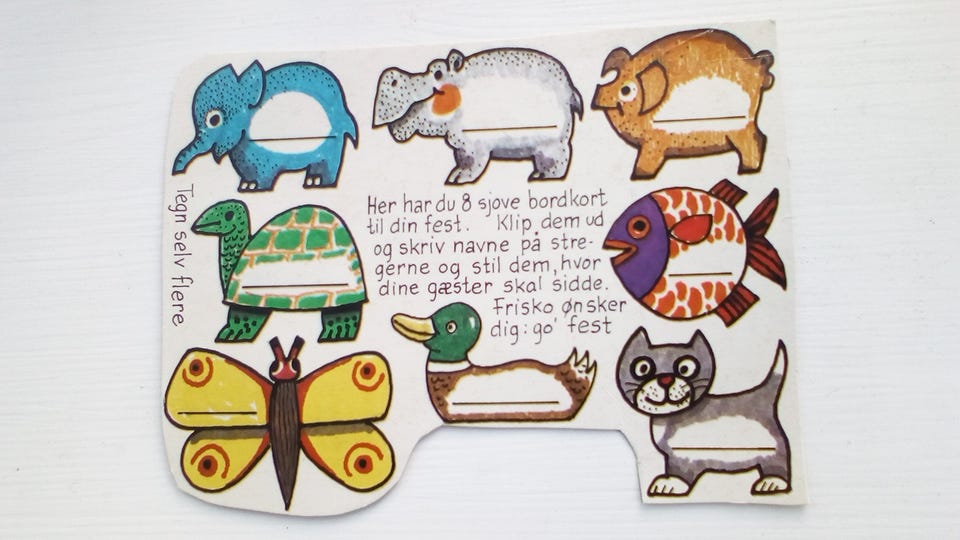 Her har du 8 sjove bordkort
til din fest. Klip dem ud
og skriv navne på stre-
gerne og stil dem, hvor
dine gæster skal sidde.
Frisko ønsker
dig: go' fest
Tegn selv flere